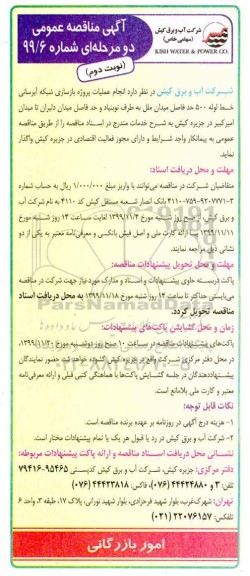 شرکت آب و برق کیش
(سهامی خاص)
KISH WATER & POWER CO.
آگهی مناقصه عمومی
دو مرحله‌ای شماره ۹۹/۶
(نوبت دوم)
شرکت آب و برق کیش در نظر دارد انجام عملیات پروژه بازسازی شبکه آبرسانی
خط لوله ۵۰۰ حد فاصل میدان ملل به طرف نوبنیاد و حد فاصل میدان دلیران تا میدان
امیرکبیر در جزیره کیش به شرح خدمات مندرج در اسناد مناقصه را از طریق مناقصه
عمومی به پیمانکار واجد شرایط و دارای مجوز فعالیت اقتصادی در جزیره کیش واگذار
نماید.
مهلت و محل دریافت اسناد:
متقاضیان شرکت در مناقصه می‌توانند با واریز مبلغ ۱/۰۰۰/۰۰۰ ریال به حساب شماره
بانک انصار شعبه مستقل کیش کد ۴۱۱۰ به نام شرکت آب
و برق کیش، از صبح روز شنبه مورخ ۱۳۹۹/۱۱/۴ لغایت ساعت ۱۴ روز شنبه مورخ
۱۳۹۹/۱۱/۱۱ با ارائه کارت ملی و اصل فیش بانکی و معرفی‌نامه معتبر به یکی از دو
نشانی ذیل مراجعه نمایند.
مهلت و محل تحویل پیشنهادات مناقصه:
پاکت دربسته حاوی پیشنهادات و اسناد و مدارک مورد نیاز جهت شرکت در مناقصه
می‌بایستی حداکثر تا ساعت ۱۴ روز شنبه مورخ ۱۳۹۹/۱۱/۱۸ به محل دریافت اسناد
مناقصه تحویل گردد.
زمان و محل گشایش پاکت‌های پیشنهادات:
پاکت‌های پیشنهادات مناقصه در ساعت ۱۰ صبح روز دوشنبه مورخ ۱۳۹۹/۱۱/۲۰
در محل دفتر مرکزی شرکت واقع در جزیره کیش گشوده خواهد شد حضور نمایندگان
پیشنهاددهندگان در جلسه گشایش پاکت‌ها با هماهنگی کتبی قبلی و ارائه معرفی‌نامه
معتبر و کارت ملی بلامانع است.
نکات قابل توجه:
۱- هزینه درج آگهی در روزنامه بر عهده برنده مناقصه است.
۲- شرکت آب و برق کیش در رد یا قبول هر یک یا تمام پیشنهادات مختار است.
نشانی محل دریافت اسناد مناقصه و ارائه پاکت پیشنهادات مربوطه:
دفتر مرکزی: جزیره کیش، شرکت آب و برق کیش کدپستی ۹۵۴۶۵-۷۹۴۱۶
تلفن: ۳ و ۴۴۴۲۴۸۸۰ (۰۷۶)، فاکس: ۴۴۴۲۳۸۱۸ (۰۷۶)
تهران: شهرک‌غرب، بلوار شهید فرحزادی، بلوار شهید نورانی، پلاک ۱۷، طبقه ۳، واحد ۶
تلفکس: ۲۲۰۷۶۱۵۷ (۰۲۱)
امور بازرگانی